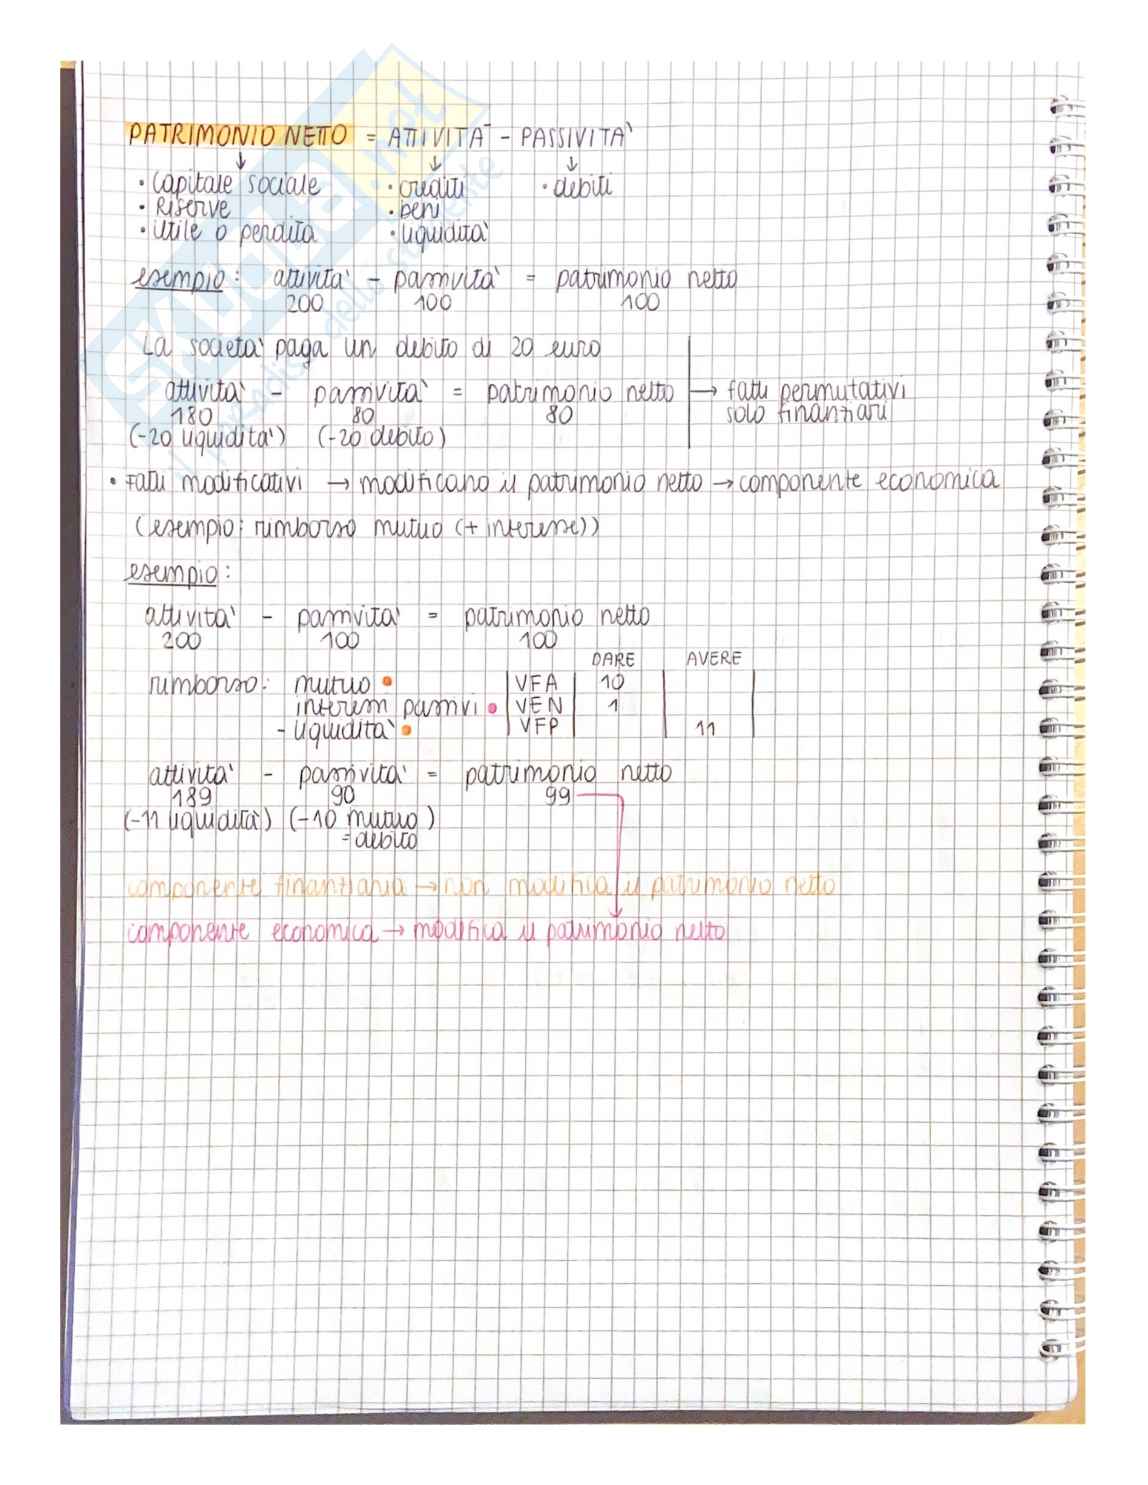 PATRIMONIO NETTO = ATTIVITA' - PASSIVITA'
↓ ↓ ↓
• Capitale sociale • crediti • debiti
• Riserve • beni
• Utile o perdita • liquidità
esempio: attività - passività = patrimonio netto
200 100 100
La società paga un debito di 20 euro
attività - passività = patrimonio netto → fatti permutativi
180 80 80 solo finanziari
(-20 liquidità) (-20 debito)
• Fatti modificativi → modificano il patrimonio netto → componente economica
(esempio: rimborso mutuo (+ interesse))
esempio:
attività - passività = patrimonio netto
200 100 100
DARE AVERE
rimborso: mutuo • VFA 10
interessi passivi • VEN 1
- liquidità • VFP 11
attività - passività = patrimonio netto
189 90 99
(-11 liquidità) (-10 mutuo)
= debito
componente finanziaria → non modifica il patrimonio netto
componente economica → modifica il patrimonio netto
skuola.net
il paradiso dello studente